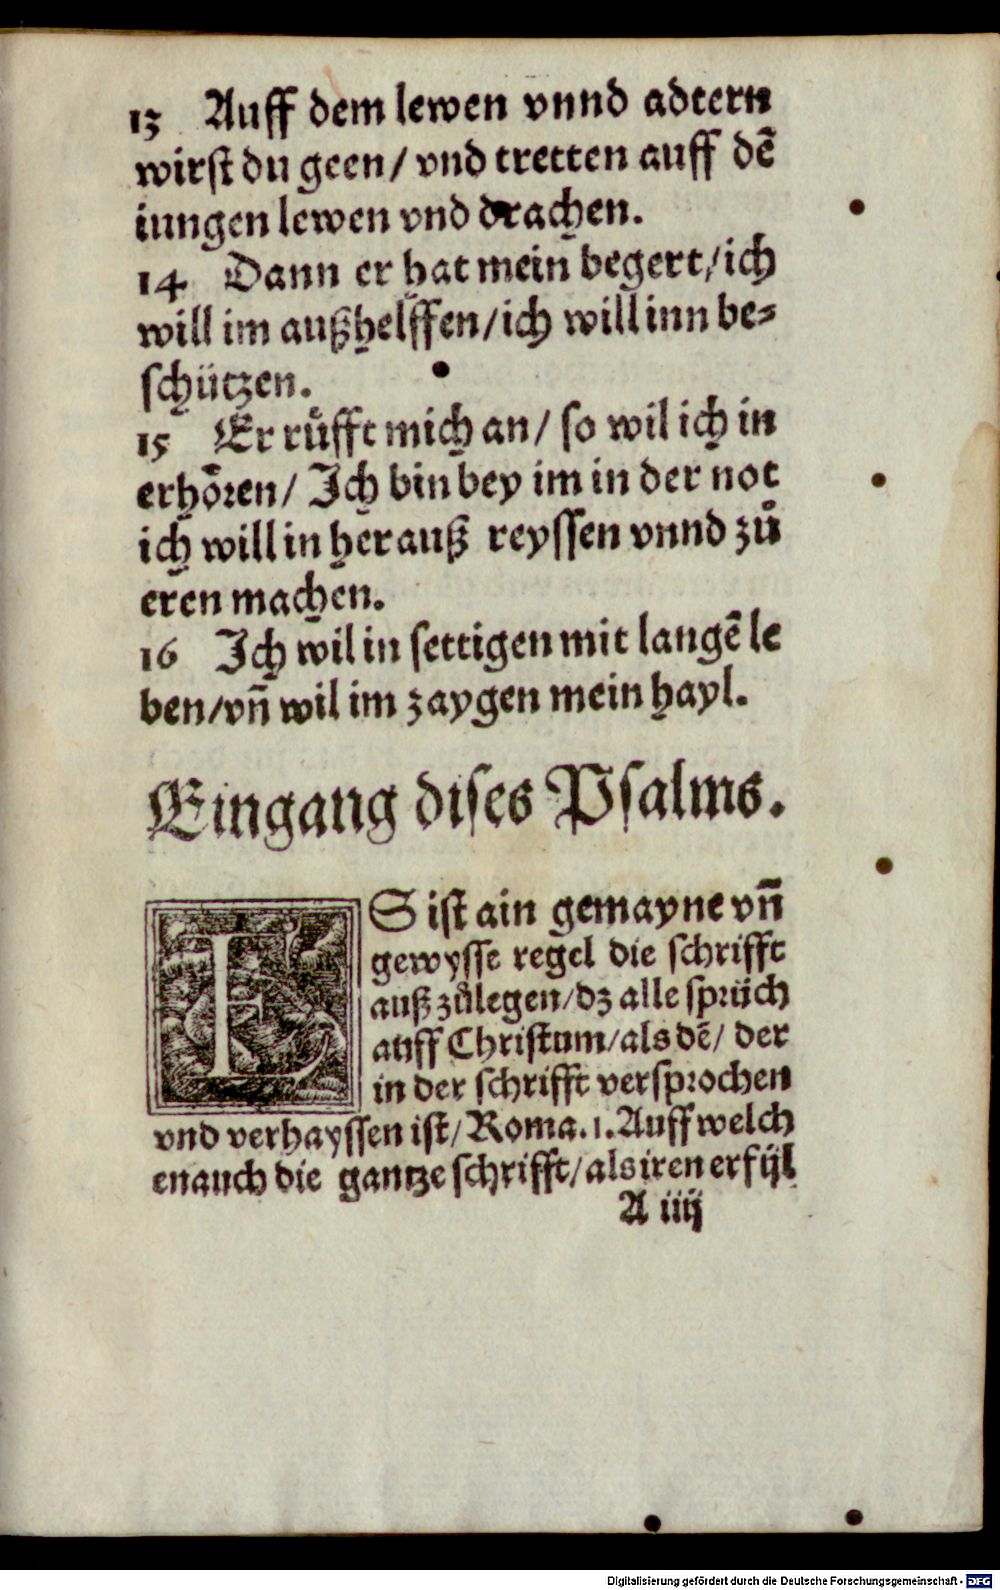 13 Auff dem lewen vnnd adtern
wirst du geen/ vnd tretten auff dē
iungen lewen vnd drachen.
14 Dann er hat mein begert/ ich
will im außhelffen/ ich will inn be⸗
schützen.
15 Er růfft mich an/ so wil ich in
erhoͤren/ Ich bin bey im in der not
ich will in herauß reyssen vnnd zů
eren machen.
16 Ich wil in settigen mit langē le
ben/ vn̄ wil im zaygen mein hayl.
Eingang dises Psalms.
ES ist ain gemayne vn̄
gewysse regel die schrifft
auß zůlegen/ dz alle sprüch
auff Christum/ als dē/ der
in der schrifft versprochen
vnd verhayssen ist/ Roma. 1. Auff welch
en auch die gantze schrifft/ als iren erfül
A iiij
Digitalisierung gefördert durch die Deutsche Forschungsgemeinschaft - DFG